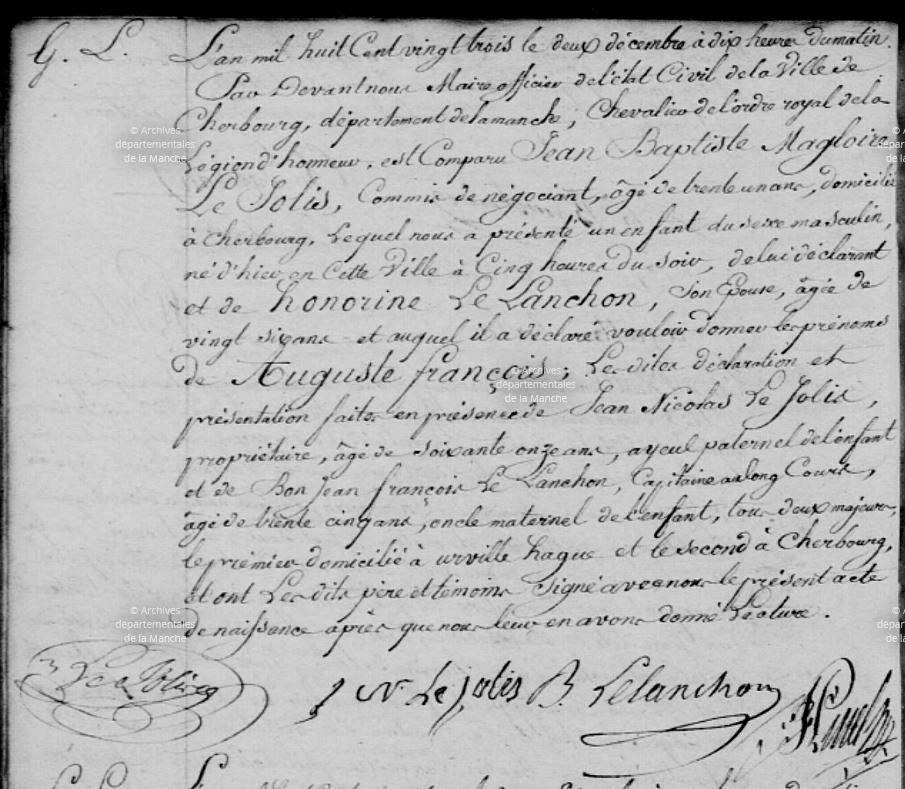 G. L.
L'an mil huit Cent vingt trois le deux décembre à dix heures du matin.
Par Devant nous Maire officier de l'état Civil de la Ville de
Cherbourg, département de la manche, Chevalier de l'ordre royal de la
Légion d'honneur, est Comparu Jean Baptiste Magloire
Le Jolis, Commis de négociant, âgé de trente un ans, domicilié
à Cherbourg, Lequel nous a présenté un enfant du sexe masculin,
né d'hier en Cette Ville à Cinq heures du soir, de lui déclarant
et de honorine Le Lanchon, son Epouse, âgée de
vingt six ans et auquel il a déclaré vouloir donner les prénoms
de Auguste françois; Les dites déclaration et
présentation faites en présence de Jean Nicolas Le Jolis,
propriétaire, âgé de soixante onze ans, ayeul paternel de l'enfant
et de Bon Jean françois Le Lanchon, Capitaine au long Cours,
âgé de trente cinq ans, oncle maternel de l'enfant, tous deux majeurs,
le prémier domicilié à urville hague et le second à Cherbourg,
Et ont Les dits père et témoins signé avec nous le présent acte
de naissance après que nous leur en avons donné Lecture.
Le Jolis
J N. Le Jolis B. Lelanchon
© Archives
départementales
de la Manche
© Archives
départementales
de la Manche
© Archives
départementales
de la Manche